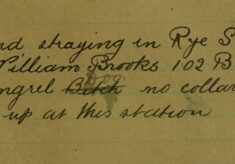 nd straying in Rye S
William Brooks 102 B
Dog
ngrel Bitch no colla
up at this station